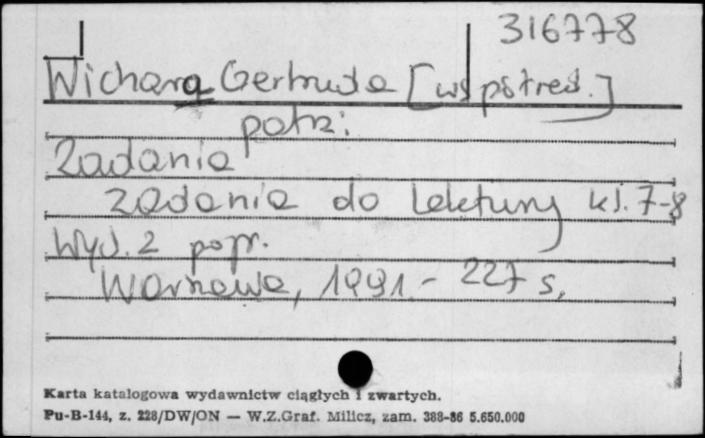 316778
Wichara Gertruda [współred.]
patrz:
Zadania
Zadania do lektury kl. 7-8
Wyd. 2 popr.
Warszawa, 1991. - 227 s.
Karta katalogowa wydawnictw ciągłych i zwartych.
Pu-B-144, z. 228/DW/ON — W.Z.Graf. Milicz, zam. 388-86 5.650.000